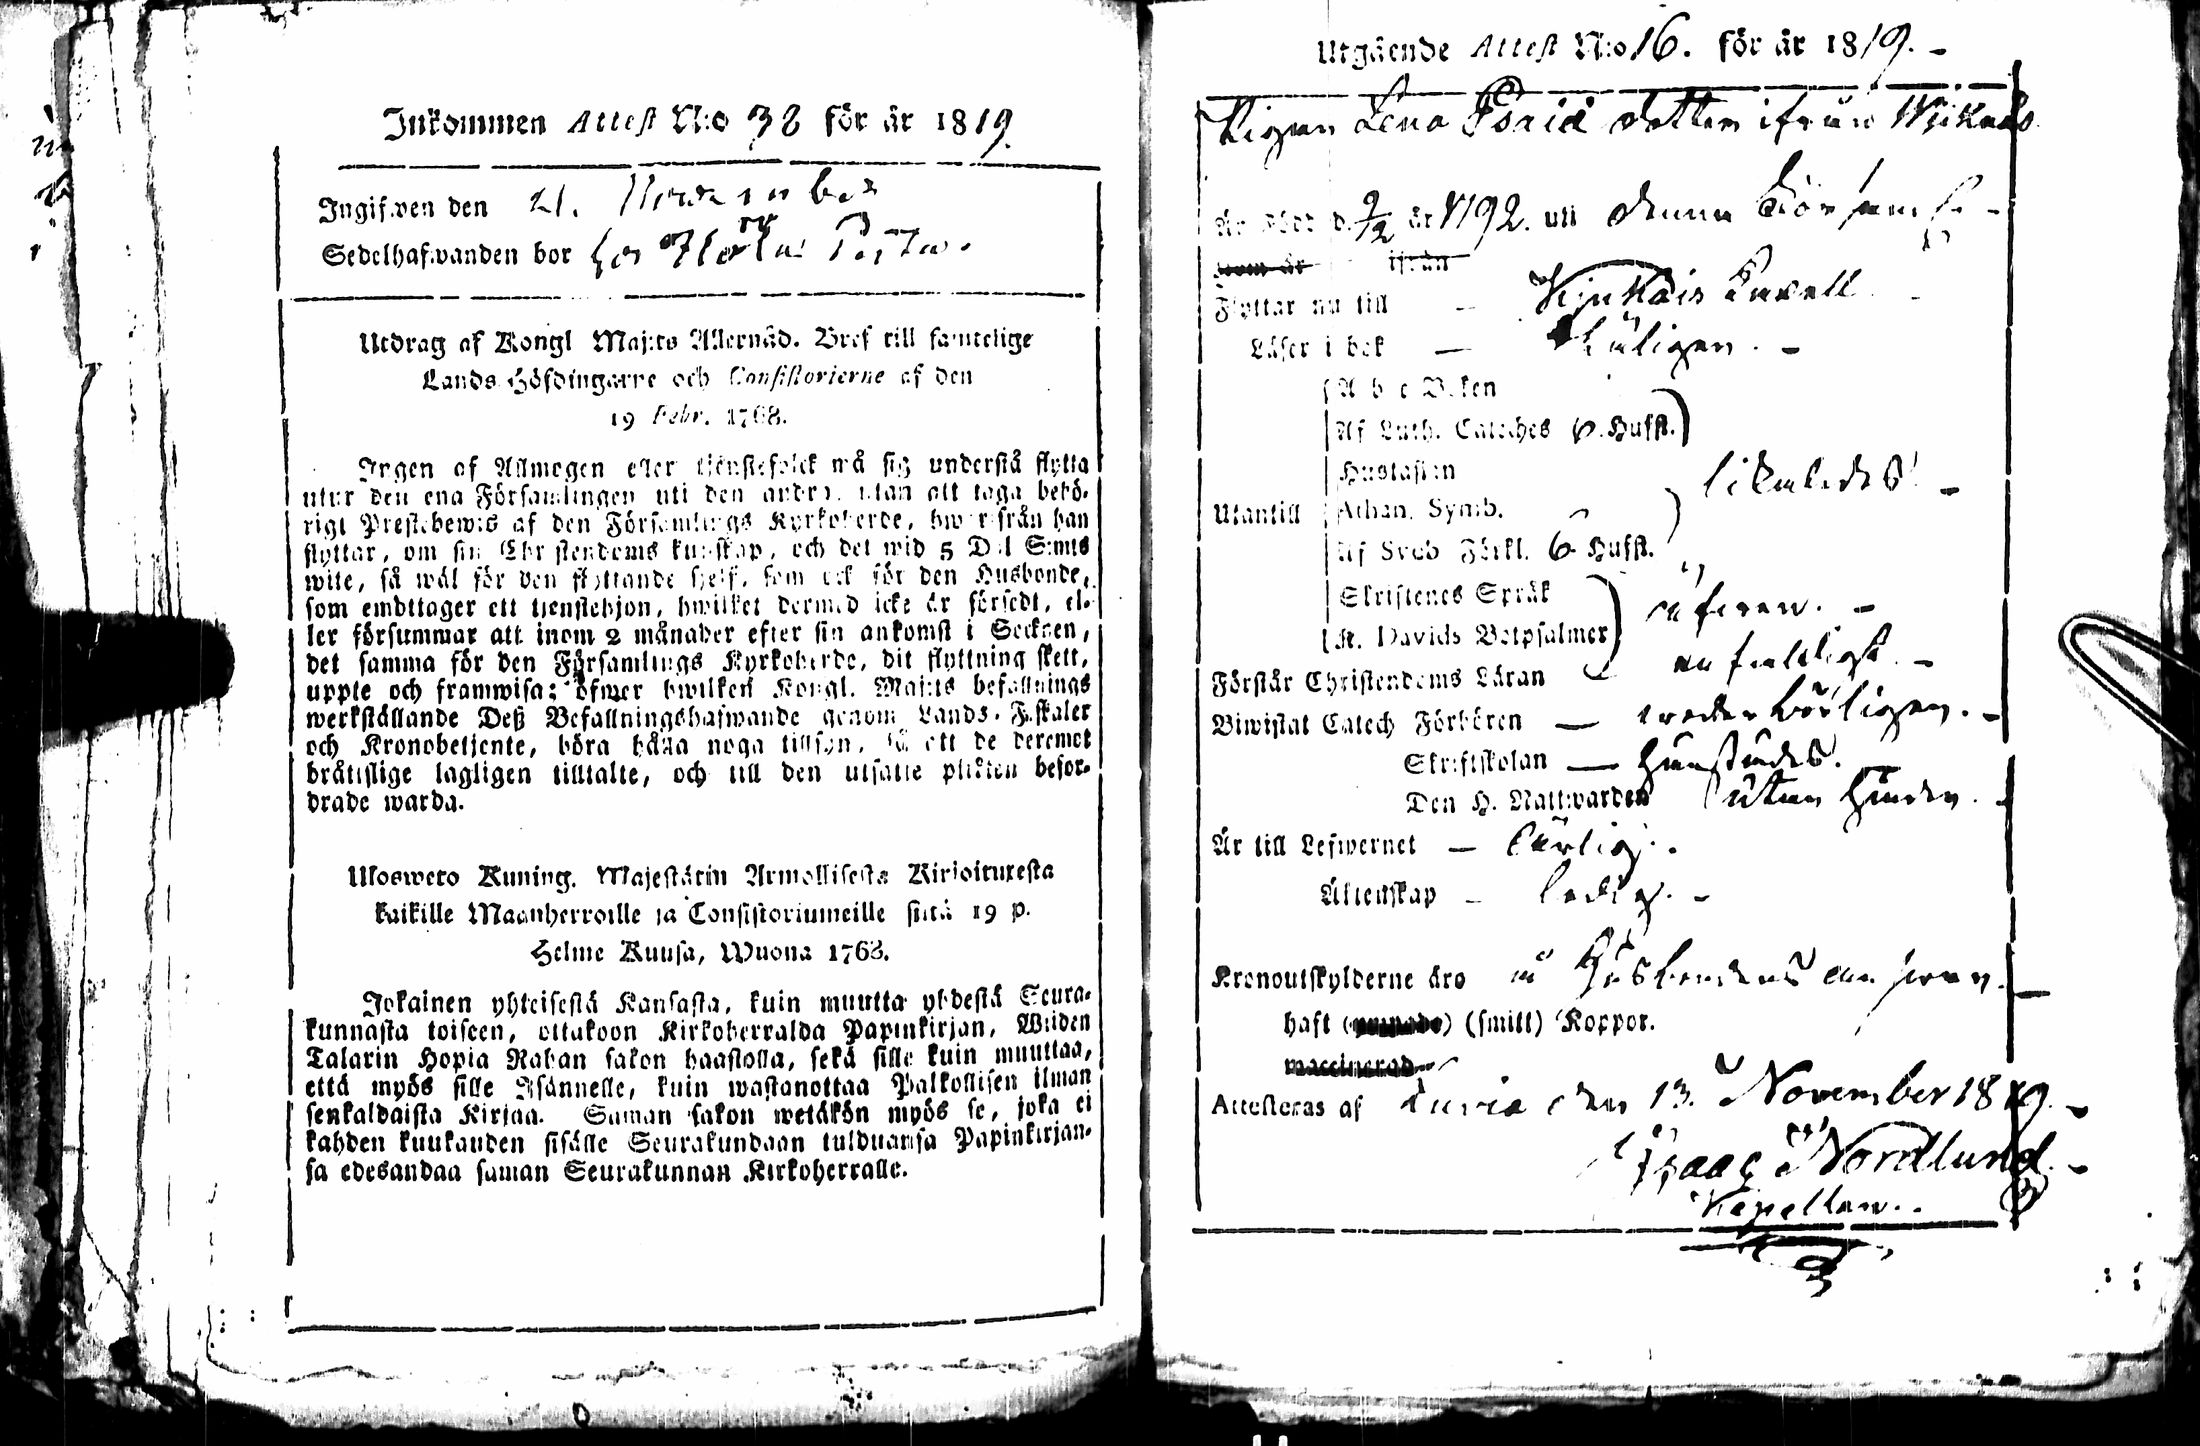 Inkommen Attest N:o 38 för år 1819.
Ingifwen den 21. November
Sedelhafwanden bor hos
Utdrag af Kongl Maj:ts Allernåd. Bref till samtelige
Lands Höfdingarne och Consistorierne af den
19 Febr. 1768.
Ingen af Allmogen eller tjenstefolck må sig understå flytta
utur den ena Församlingen uti den andra, utan att taga behö-
rigt Prestebewis af den Församlings Kyrkoherde, hwarifrån han
flyttar, om sin Christendoms kunskap, och det wid 5 Dal S:mts
wite, så wäl för den flyttande sjelf, som ock för den Husbonde,
som emottager ett tjenstehjon, hwilket dermed icke är försedt, el-
ler försummar att inom 2 månader efter sin ankomst i Socknen,
det samma för den Församlings Kyrkoherde, dit flyttning skett,
uppte och framwisa; öfwer hwilken Kongl. Maj:ts befallnings
werkställande Deß Befallningshafwande genom Lands-Fiskaler
och Kronobetjente, böra hålla noga tillsyn, så att de deremot
bråttslige lagligen tilltalte, och till den utsatte plikten befor-
drade warda.
Ulosweto Kuning. Majestätin Armollisesta Kirjoituxesta
kaikille Maanherroille ja Consistoriumeille siitä 19 p.
Helme Kuusa, Wuona 1768.
Jokainen yhteisestä Kansasta, kuin muutta yhdestä Seura-
kunnasta toiseen, ottakoon Kirkoherralda Papinkirjan, Wiiden
Talarin Hopia Rahan sakon haastolla, sekä sille kuin muuttaa,
että myös sille Isännelle, kuin wastanottaa Palkollisen ilman
senkaldaista Kirjaa. Saman sakon wetäkön myös se, joka ei
kahden kuukauden sisälle Seurakundaan tulduansa Papinkirjan-
sa edesandaa saman Seurakunnan Kirkoherralle.
Utgående Attest N:o 16. för år 1819.
Pigan Lena Isaks dotter ifrån
Är född d. 9/2 år 1792. uti denna Församl.
som är ifrån
Flyttar nu till — Kjukais Capell
Läser i bok —
A b c Boken
Af Luth. Cateches 6. Hufst.
Hustaflan
Utantill Athan. Symb. likaledes
Af Sveb Förkl. 6 Hufst.
Skriftenes Språk
K. Davids Botpsalmer öfwen.
Förstår Christendoms Läran enfaldigt
Biwistat Catech Förhören — wederbörligen.
Skriftskolan —
Den H. Nattwarden utan hinder.
Är till Lefwernet — ärlig.
Äktenskap — ledig.
Kronoutskylderne äro å Husbondens answar.
haft (smitt) Koppor.
vaccinerad
Attesteras af Euria den 13. November 1819.
Isaac Nordlund
Kapellan.